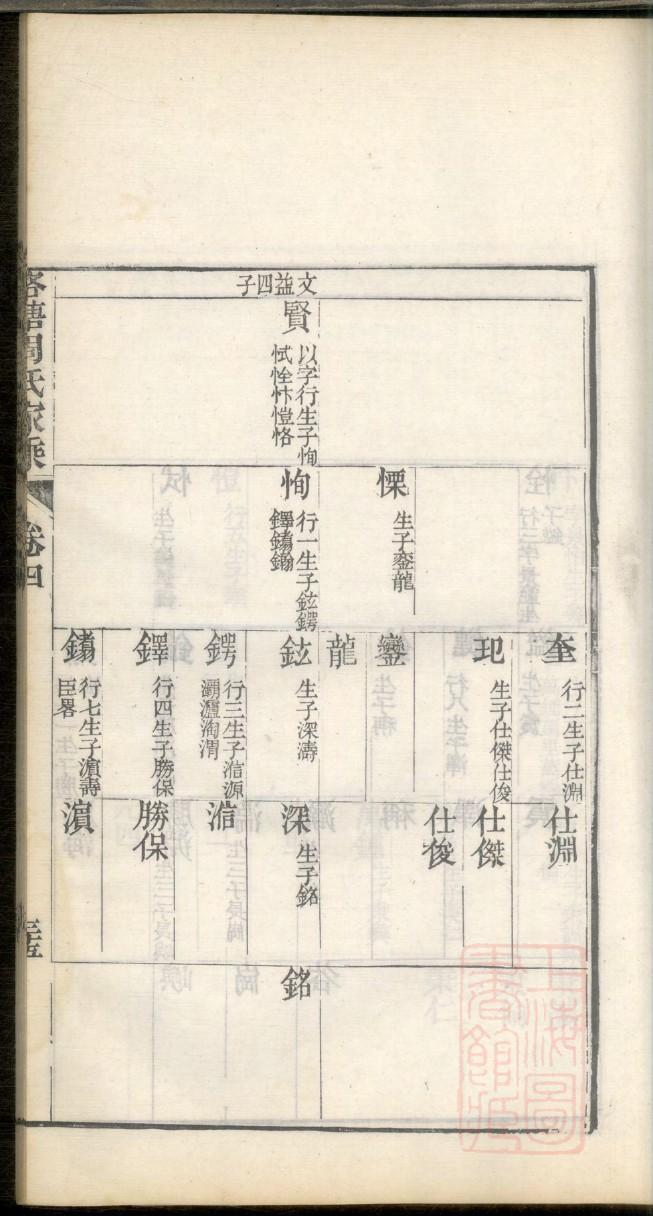 文益四子
賢
以字行生子恂
恜恮忭愷恪
慄
生子鑾龍
恂
行一生子鉉鍔
鐸鐊鏓
奎
行二生子仕淵
玘
生子仕傑仕俊
鑾
龍
鉉
生子深濤
鍔
行三生子湇源
灞灃淘渭
鐸
行四生子勝保
鐊
行七生子濵壽
臣畧
仕淵
仕傑
仕俊
深
生子銘
湇
勝保
濵
銘
塘周氏家乘
卷四
上海圖書館藏